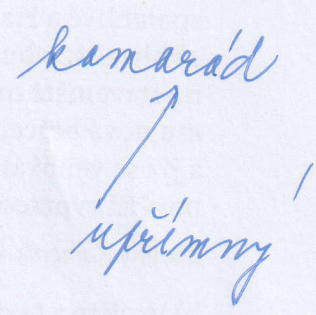 kamarád
upřímný